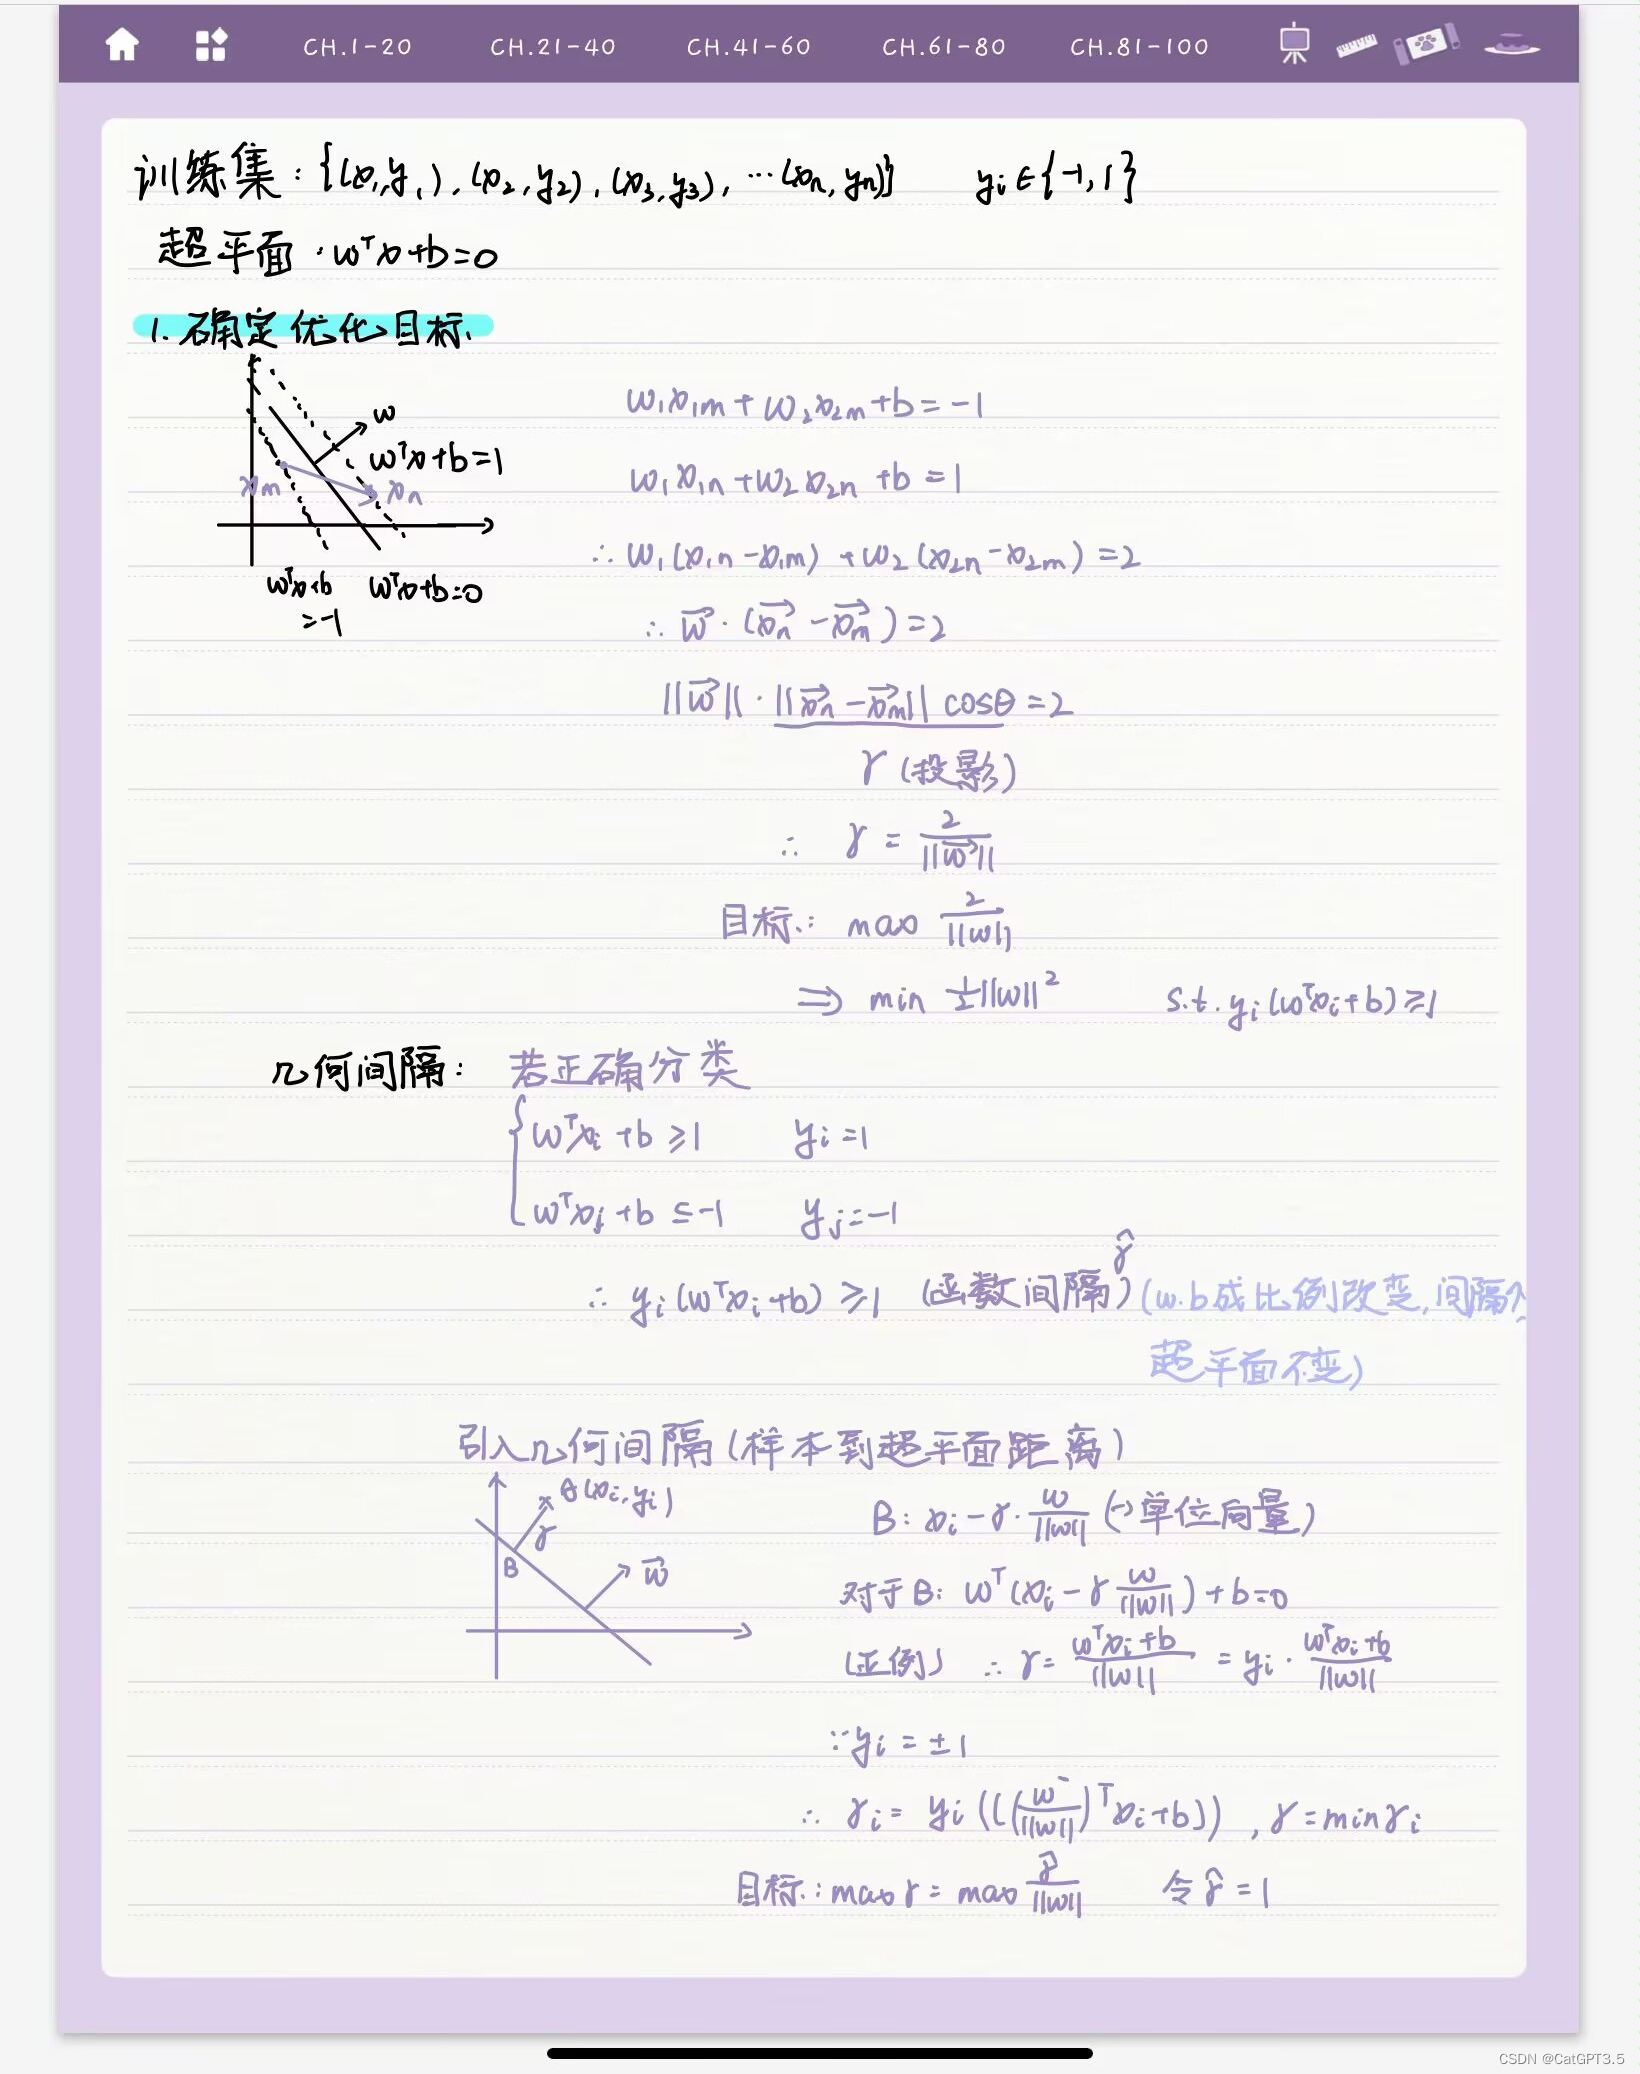 CH.1-20 CH.21-40 CH.41-60 CH.61-80 CH.81-100
训练集：{(x₁,y₁), (x₂,y₂), (x₃,y₃), …(xₙ,yₙ)} yᵢ∈{-1,1}
超平面：wᵀx+b=0
1. 确定优化目标.
w
wᵀx+b=1
xm xn
wᵀx+b=-1
wᵀx+b=0
w₁x₁m+w₂x₂m+b=-1
w₁x₁n+w₂x₂n+b=1
∴ w₁(x₁n-x₁m)+w₂(x₂n-x₂m)=2
∴ w⃗·(x⃗n-x⃗m)=2
||w⃗||·||x⃗n-x⃗m|| cosθ=2
γ(投影)
∴ γ = 2/||w⃗||
目标：max 2/||w||
⇒ min ½||w||² s.t. yᵢ(wᵀxᵢ+b)≥1
几何间隔：若正确分类
{ wᵀxᵢ+b≥1 yᵢ=1
wᵀxⱼ+b≤-1 yⱼ=-1
∴ yᵢ(wᵀxᵢ+b)≥1 (函数间隔) γ̂ (w.b成比例改变,间隔
超平面不变)
引入几何间隔(样本到超平面距离)
A(xᵢ,yᵢ)
γ
B
w⃗
B: xᵢ-γ·w/||w|| (→单位向量)
对于B: wᵀ(xᵢ-γ w/||w||)+b=0
(正例) ∴ γ= (wᵀxᵢ+b)/||w|| = yᵢ·(wᵀxᵢ+b)/||w||
∵ yᵢ=±1
∴ γᵢ= yᵢ(((w/||w||)ᵀxᵢ+b)), γ=minγᵢ
目标：maxγ= max γ̂/||w|| 令γ̂=1
CSDN @CatGPT3.5